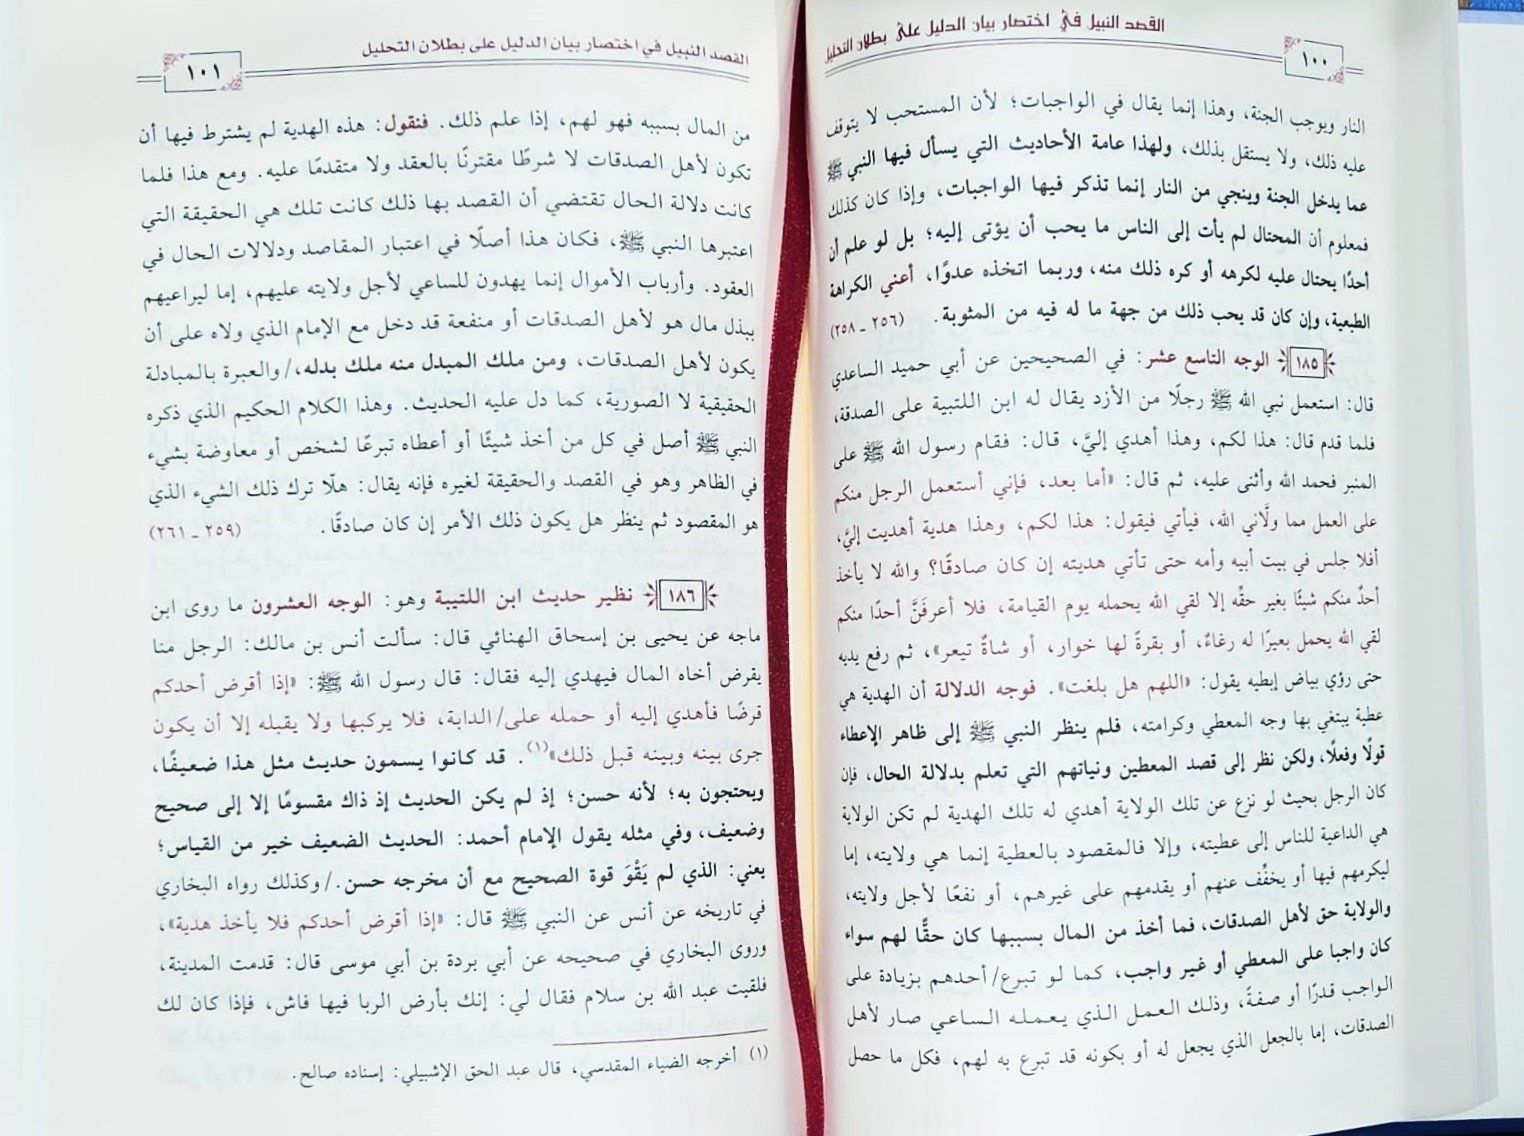 القصد النبيل في اختصار بيان الدليل على بطلان التحليل
١٠٠
النار ويوجب الجنة، وهذا إنما يقال في الواجبات؛ لأن المستحب لا يتوقف
عليه ذلك، ولا يستقل بذلك، ولهذا عامة الأحاديث التي يسأل فيها النبي ﷺ
عما يدخل الجنة وينجي من النار إنما تذكر فيها الواجبات، وإذا كان كذلك
فمعلوم أن المحتال لم يأت إلى الناس ما يحب أن يؤتى إليه؛ بل لو علم أن
أحدًا يحتال عليه لكرهه أو كره ذلك منه، وربما اتخذه عدوًا، أعني الكراهة
الطبعية، وإن كان قد يحب ذلك من جهة ما له فيه من المثوبة. (٢٥٦ ـ ٢٥٨)
١٨٥ الوجه التاسع عشر: في الصحيحين عن أبي حميد الساعدي
قال: استعمل نبي الله ﷺ رجلًا من الأزد يقال له ابن اللتبية على الصدقة،
فلما قدم قال: هذا لكم، وهذا أهدي إليَّ، قال: فقام رسول الله ﷺ على
المنبر فحمد الله وأثنى عليه، ثم قال: «أما بعد، فإني أستعمل الرجل منكم
على العمل مما ولَّاني الله، فيأتي فيقول: هذا لكم، وهذا هدية أهديت إليَّ،
أفلا جلس في بيت أبيه وأمه حتى تأتي هديته إن كان صادقًا؟ والله لا يأخذ
أحدٌ منكم شيئًا بغير حقِّه إلا لقي الله يحمله يوم القيامة، فلا أعرفَنَّ أحدًا منكم
لقي الله يحمل بعيرًا له رغاءٌ، أو بقرةً لها خوار، أو شاةٌ تيعر»، ثم رفع يديه
حتى رؤي بياض إبطيه يقول: «اللهم هل بلغت». فوجه الدلالة أن الهدية هي
عطية يبتغي بها وجه المعطي وكرامته، فلم ينظر النبي ﷺ إلى ظاهر الإعطاء
قولًا وفعلًا، ولكن نظر إلى قصد المعطين ونياتهم التي تعلم بدلالة الحال، فإن
كان الرجل بحيث لو نزع عن تلك الولاية أهدي له تلك الهدية لم تكن الولاية
هي الداعية للناس إلى عطيته، وإلا فالمقصود بالعطية إنما هي ولايته، إما
ليكرمهم فيها أو يخفِّف عنهم أو يقدمهم على غيرهم، أو نفعًا لأجل ولايته،
والولاية حق لأهل الصدقات، فما أخذ من المال بسببها كان حقًّا لهم سواء
كان واجبا على المعطي أو غير واجب، كما لو تبرع/ أحدهم بزيادة على
الواجب قدرًا أو صفةً، وذلك العمل الذي يعمله الساعي صار لأهل
الصدقات، إما بالجعل الذي يجعل له أو بكونه قد تبرع به لهم، فكل ما حصل
القصد النبيل في اختصار بيان الدليل على بطلان التحليل
١٠١
من المال بسببه فهو لهم، إذا علم ذلك. فنقول: هذه الهدية لم يشترط فيها أن
تكون لأهل الصدقات لا شرطًا مقترنًا بالعقد ولا متقدمًا عليه. ومع هذا فلما
كانت دلالة الحال تقتضي أن القصد بها ذلك كانت تلك هي الحقيقة التي
اعتبرها النبي ﷺ، فكان هذا أصلًا في اعتبار المقاصد ودلالات الحال في
العقود. وأرباب الأموال إنما يهدون للساعي لأجل ولايته عليهم، إما ليراعيهم
ببذل مال هو لأهل الصدقات أو منفعة قد دخل مع الإمام الذي ولاه على أن
يكون لأهل الصدقات، ومن ملك المبدل منه ملك بدله،/ والعبرة بالمبادلة
الحقيقية لا الصورية، كما دل عليه الحديث. وهذا الكلام الحكيم الذي ذكره
النبي ﷺ أصل في كل من أخذ شيئًا أو أعطاه تبرعًا لشخص أو معاوضة بشيء
في الظاهر وهو في القصد والحقيقة لغيره فإنه يقال: هلَّا ترك ذلك الشيء الذي
هو المقصود ثم ينظر هل يكون ذلك الأمر إن كان صادقًا. (٢٥٩ ـ ٢٦١)
١٨٦ نظير حديث ابن اللتيبة وهو: الوجه العشرون ما روى ابن
ماجه عن يحيى بن إسحاق الهنائي قال: سألت أنس بن مالك: الرجل منا
يقرض أخاه المال فيهدي إليه فقال: قال رسول الله ﷺ: «إذا أقرض أحدكم
قرضًا فأهدي إليه أو حمله على/ الدابة، فلا يركبها ولا يقبله إلا أن يكون
جرى بينه وبينه قبل ذلك»(١). قد كانوا يسمون حديث مثل هذا ضعيفًا،
ويحتجون به؛ لأنه حسن؛ إذ لم يكن الحديث إذ ذاك مقسومًا إلا إلى صحيح
وضعيف، وفي مثله يقول الإمام أحمد: الحديث الضعيف خير من القياس؛
يعني: الذي لم يَقْوَ قوة الصحيح مع أن مخرجه حسن./ وكذلك رواه البخاري
في تاريخه عن أنس عن النبي ﷺ قال: «إذا أقرض أحدكم فلا يأخذ هدية»،
وروى البخاري في صحيحه عن أبي بردة بن أبي موسى قال: قدمت المدينة،
فلقيت عبد الله بن سلام فقال لي: إنك بأرض الربا فيها فاش، فإذا كان لك
(١) أخرجه الضياء المقدسي، قال عبد الحق الإشبيلي: إسناده صالح.